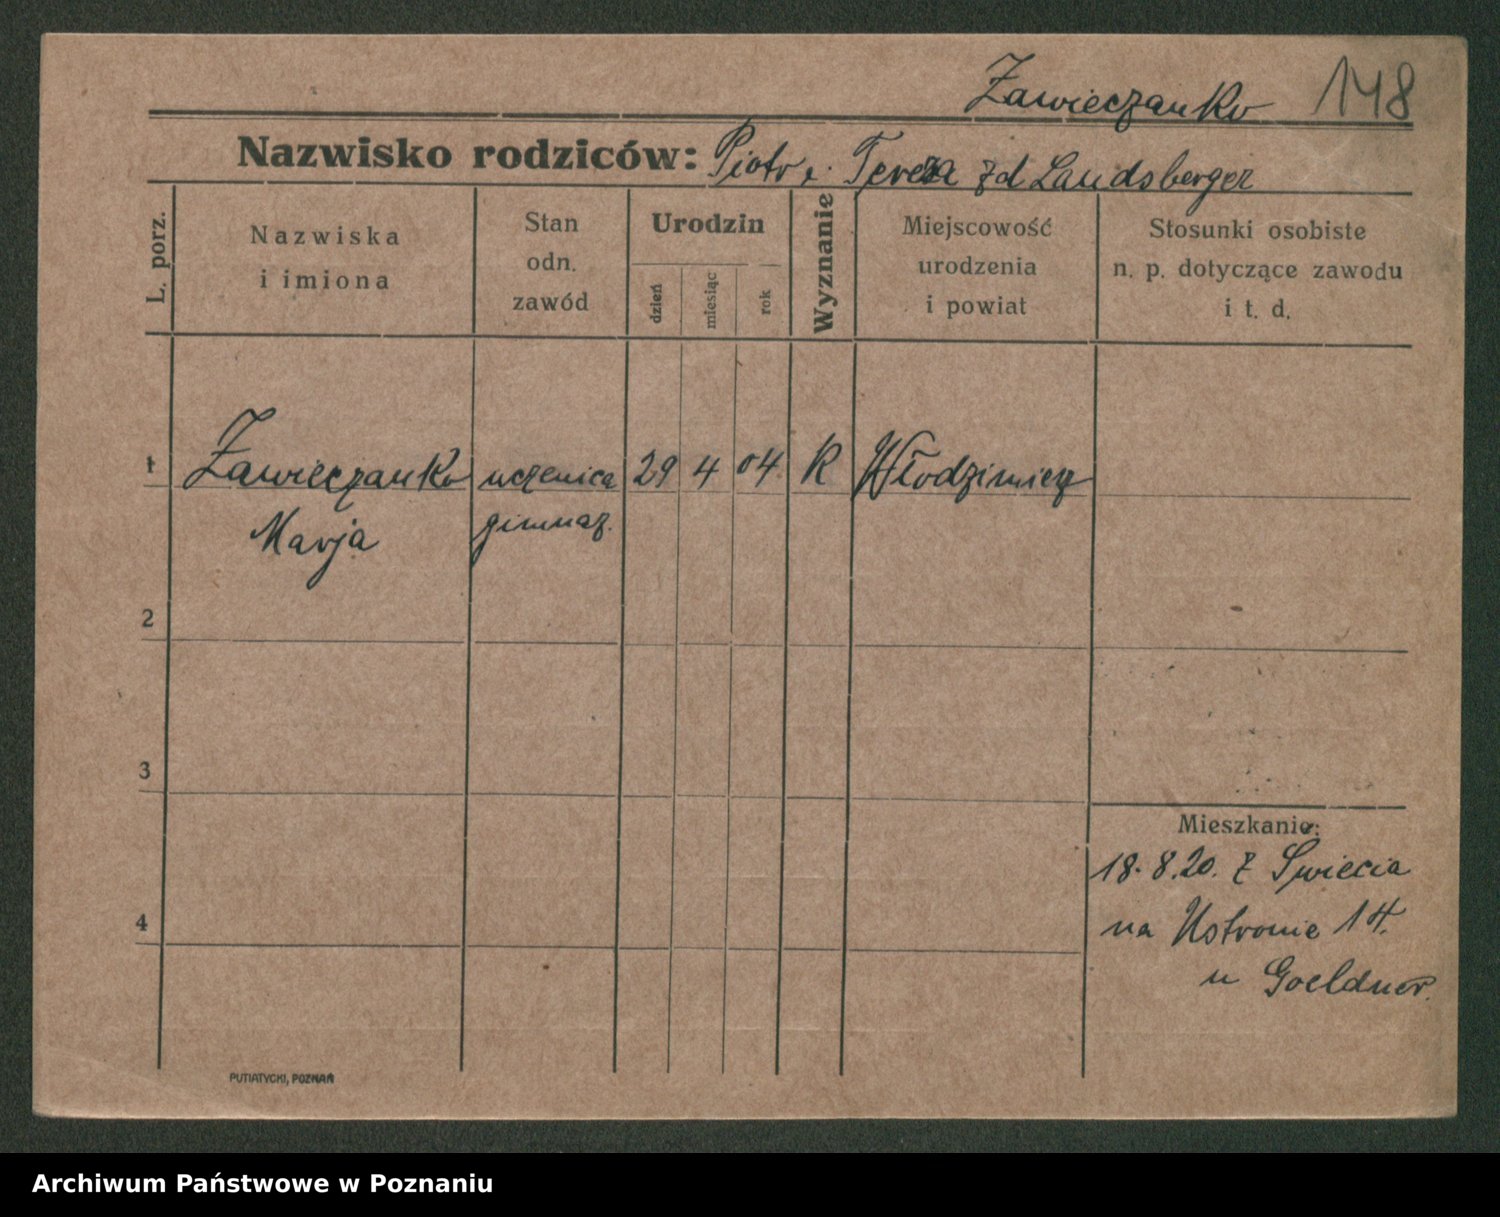 Zawieczanko 148
Nazwisko rodziców: Piotr i Tereza zd Landsberger
L. porz.
Nazwiska
i imiona
Stan
odn.
zawód
Urodzin
dzień
miesiąc
rok
Wyznanie
Miejscowość
urodzenia
i powiat
Stosunki osobiste
n. p. dotyczące zawodu
i t. d.
1 Zawieczanko uczenica 29 4 04 R Włodzimierz
Marja gimnaz.
2
3
4
Mieszkanie:
18.8.20. z Swiecia
na Ustronie 14.
u Goeldner.
PUTIATYCKI, POZNAŃ
Archiwum Państwowe w Poznaniu